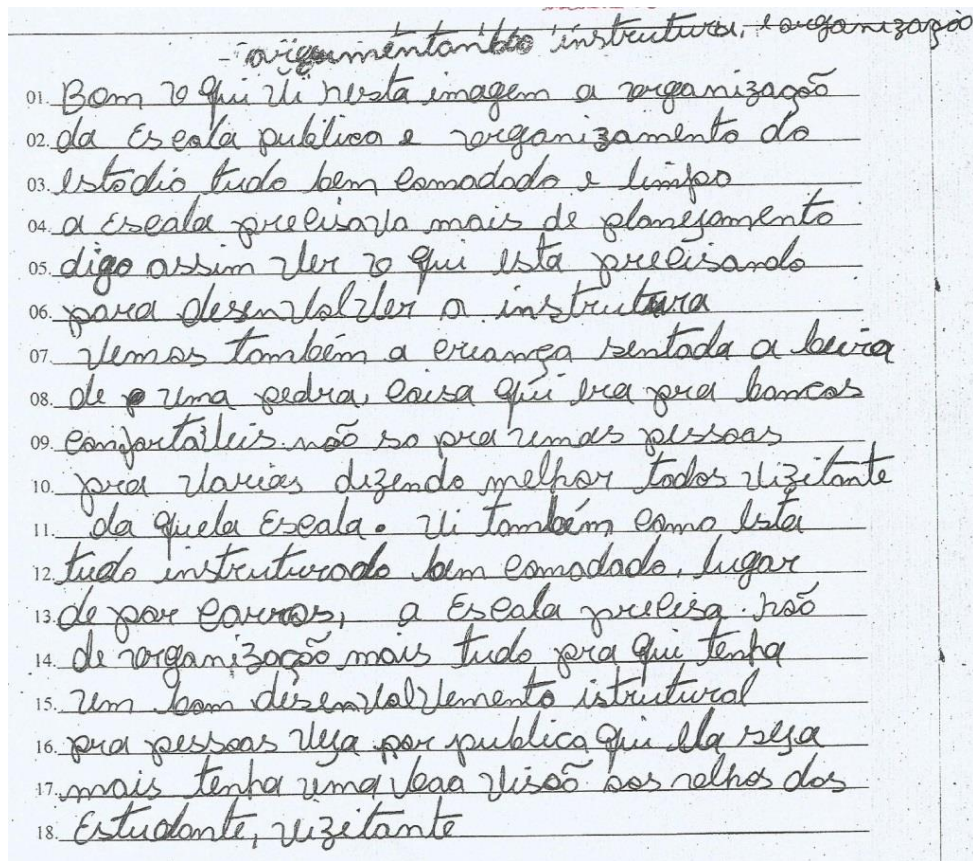 - argumentantdo instrutura, e organização
01. Bom o qui vi nesta imagem a organização
02. da Escola publica e organizamento do
03. estádio tudo bem comodado e limpo
04. a Escola precisava mais de planejamento
05. digo assim ver o qui esta precisando
06. para desenvolver a instrutura
07. vemos também a criança sentada a beira
08. de uma pedra, coisa qui era pra bancos
09. confortáveis não so pra umas pessoas
10. pra varias dizendo melhor todos vizitante
11. da quela Escola. vi também como esta
12. tudo instruturado bem comodado, lugar
13. de por carros, a Escola precisa não
14. de organização mais tudo pra qui tenha
15. um bom desenvolvemento istrutural
16. pra pessoas veja por publica qui ela seja
17. mais tenha uma boa visão aos olhos dos
18. Estudante, vizitante